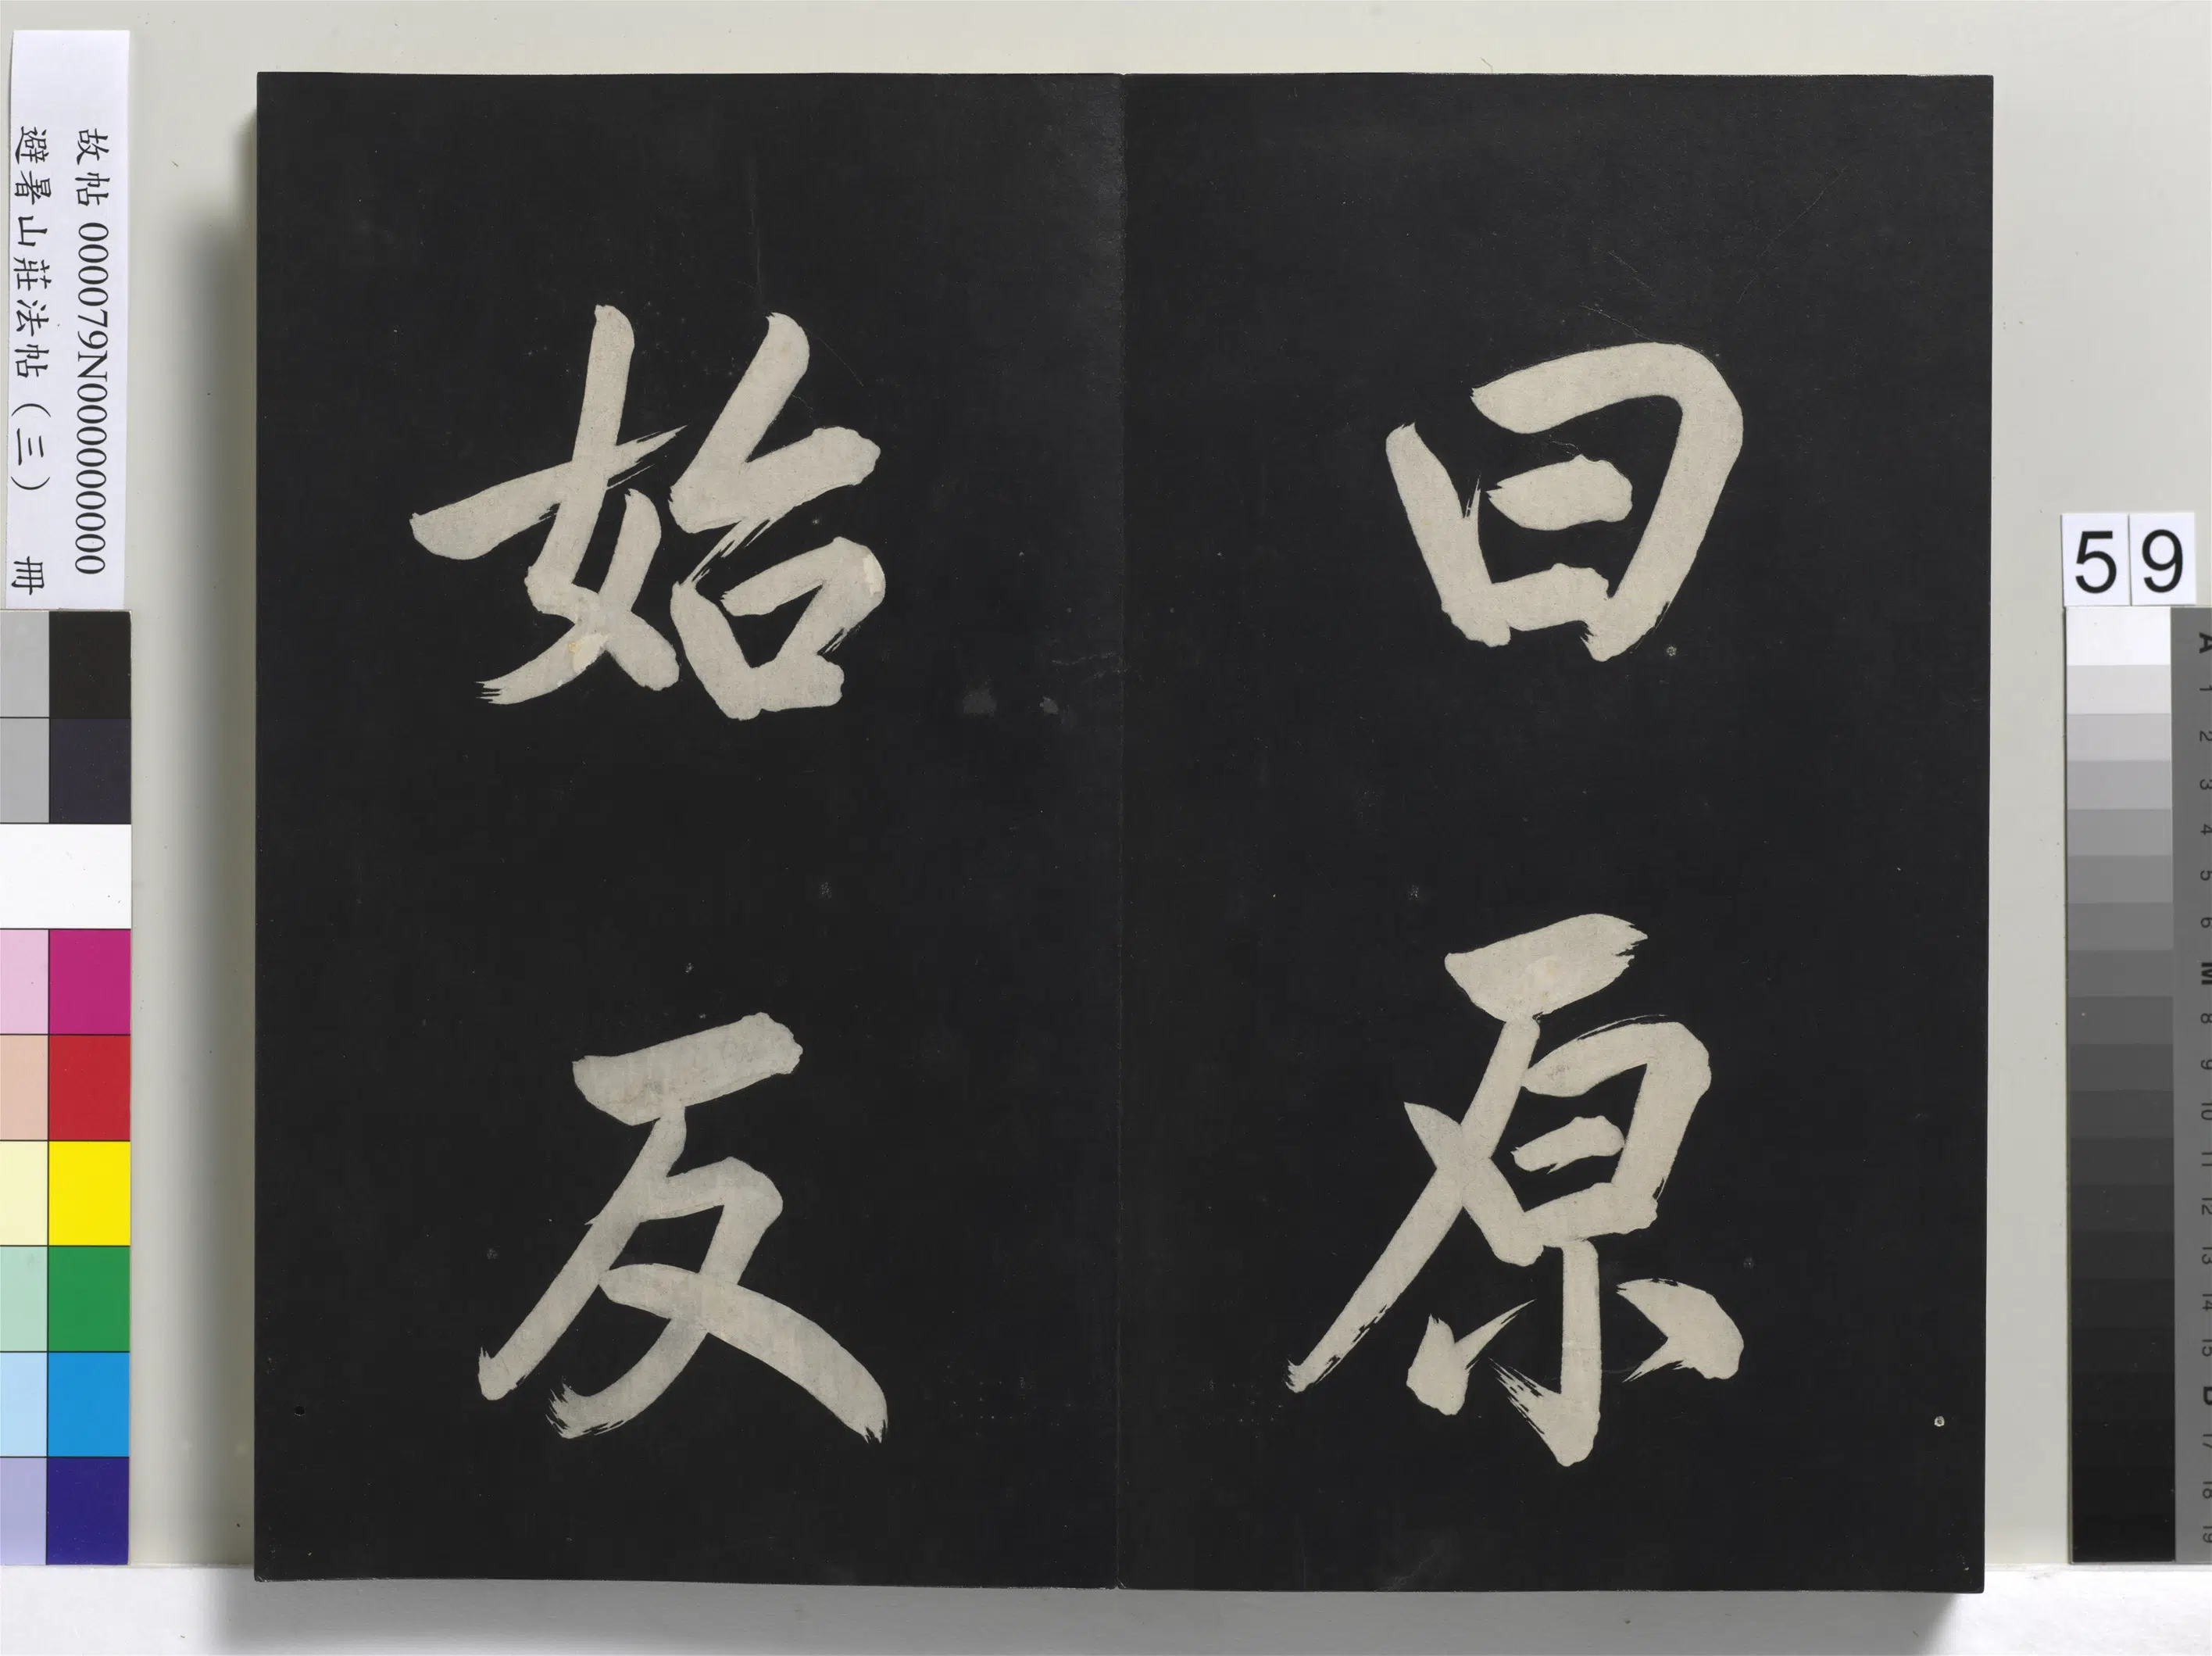 曰原
始反
故帖 000079N000000000
避暑山莊法帖（三） 冊
59
A
1
2
3
4
5
6
M
8
9
10
11
12
13
14
15
B
17
18
19